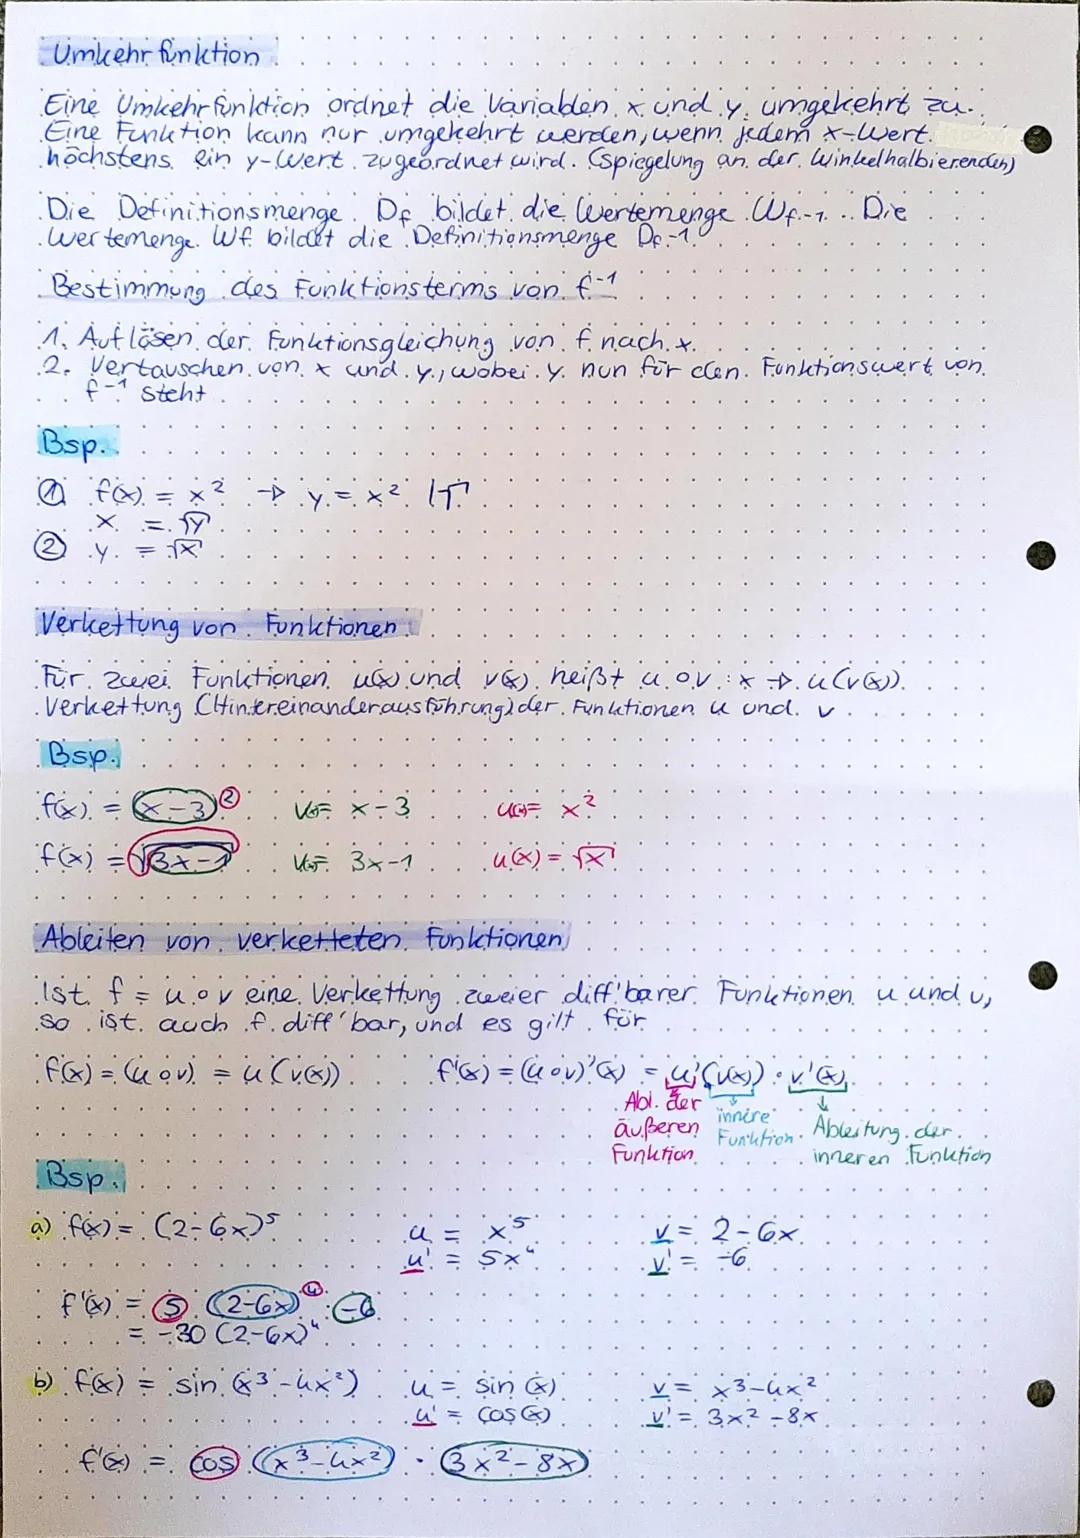 Umkehrfunktion
Eine Umkehrfunktion ordnet die Variablen x und y umgekehrt zu.
Eine Funktion kann nur umgekehrt werden, wenn jedem x-Wert
höchstens ein y-Wert zugeordnet wird. (Spiegelung an der Winkelhalbierenden)
Die Definitionsmenge Df bildet die Wertemenge Wf-1. Die
Wertemenge Wf bildet die Definitionsmenge Df-1.
Bestimmung des Funktionsterms von f⁻¹
1. Auflösen der Funktionsgleichung von f nach x.
2. Vertauschen von x und y, wobei y nun für den Funktionswert von
f⁻¹ steht
Bsp.
① f(x) = x² → y = x² |√
x = √y
② y = √x
Verkettung von Funktionen
Für zwei Funktionen u(x) und v(x) heißt u∘v : x → u(v(x))
Verkettung (Hintereinanderausführung) der Funktionen u und v
Bsp.
f(x) = (x-3)² v(x)= x-3 u(x)= x²
f(x) = √3x-1 v(x)= 3x-1 u(x) = √x
Ableiten von verketteten Funktionen
Ist f = u∘v eine Verkettung zweier diff'barer Funktionen u und v,
so ist auch f diff'bar, und es gilt für
f(x) = (u∘v) = u(v(x)) f'(x) = (u∘v)'(x) = u'(v(x)) · v'(x)
Abl. der innere
äußeren Funktion Ableitung der
Funktion inneren Funktion
Bsp.
a) f(x) = (2-6x)⁵ u = x⁵ v = 2-6x
u' = 5x⁴ v' = -6
f'(x) = 5 · (2-6x)⁴ · -6
= -30 (2-6x)⁴
b) f(x) = sin (x³-4x²) u = sin (x) v = x³-4x²
u' = cos(x) v' = 3x²-8x
f'(x) = cos (x³-4x²) · (3x²-8x)